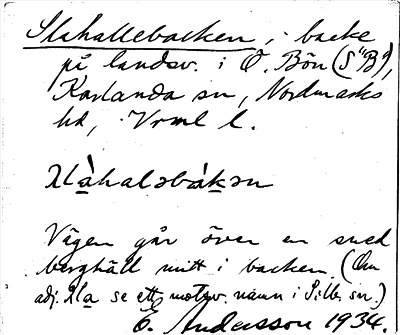 Slahallebacken, backe
på landsv. i Ö. Bön (S "B"),
Karlanda sn, Nordmarks
hd, Vrml l.
Vägen går över en sned
berghäll mitt i backen. (Om
adj. sla se ett motsv. namn i Sillb. sn.)
E. Andersson 1934.